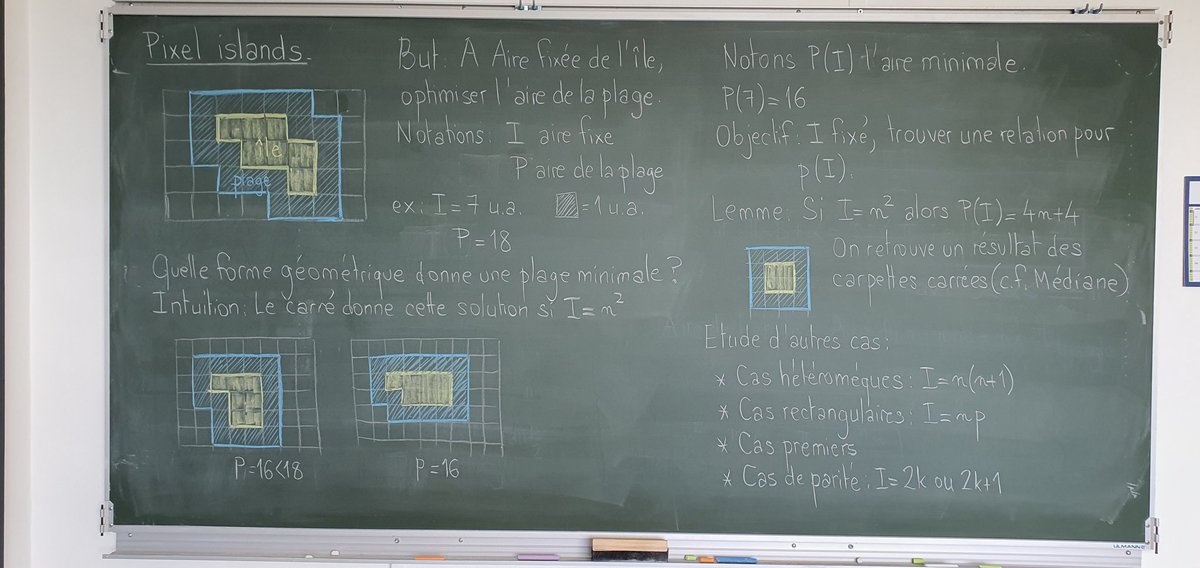 Pixel islands.
île
plage
But: À Aire fixée de l'île,
optimiser l'aire de la plage.
Notations: I aire fixe
P aire de la plage
ex: I=7 u.a. =1 u.a.
P=18
Quelle forme géométrique donne une plage minimale?
Intuition: Le carré donne cette solution si I=n²
P=16<18
P=16
Notons P(I) l'aire minimale.
P(7)=16
Objectif: I fixé, trouver une relation pour
p(I).
Lemme: Si I=n² alors P(I)=4n+4
On retrouve un résultat des
carpettes carrées (c.f. Médiane)
Etude d'autres cas:
* Cas hétéromèques: I=n(n+1)
* Cas rectangulaires: I=np
* Cas premiers
* Cas de parité: I=2k ou 2k+1
ULMANN